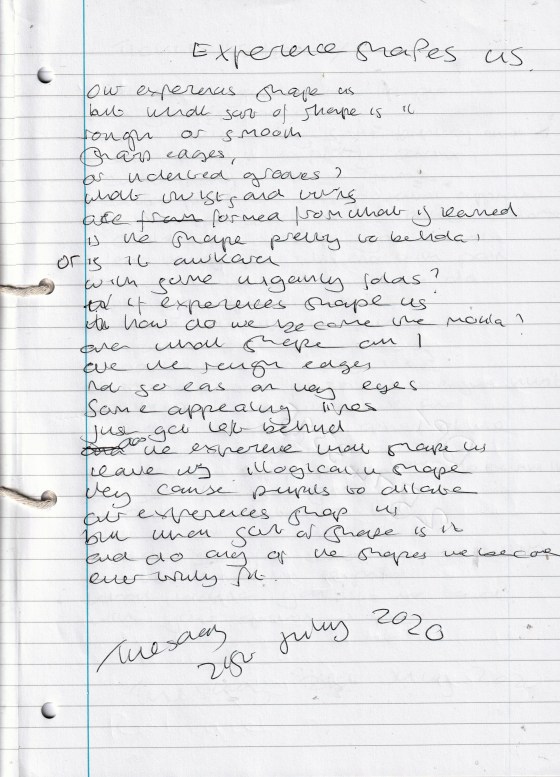 Experience shapes us.
Our experiences shape us
but what sort of shape is it
rough or smooth
sharp edges,
or indented grooves?
what twists and
are from formed from what is learned
is the shape pretty to behold,
or is it awkard
with some folds?
if experiences shape us
how do we become the mould?
and what shape am I
are the rough edges
not so eas on my eyes
some appealing lines
just get left behind
do the experience that shape us
leave us illogical in shape
they cause pupils to dilate
our experiences shap us
but what sort of shape is it
and do any of the shapes we become
ever truly fit.
Tuesday
21st July 2020